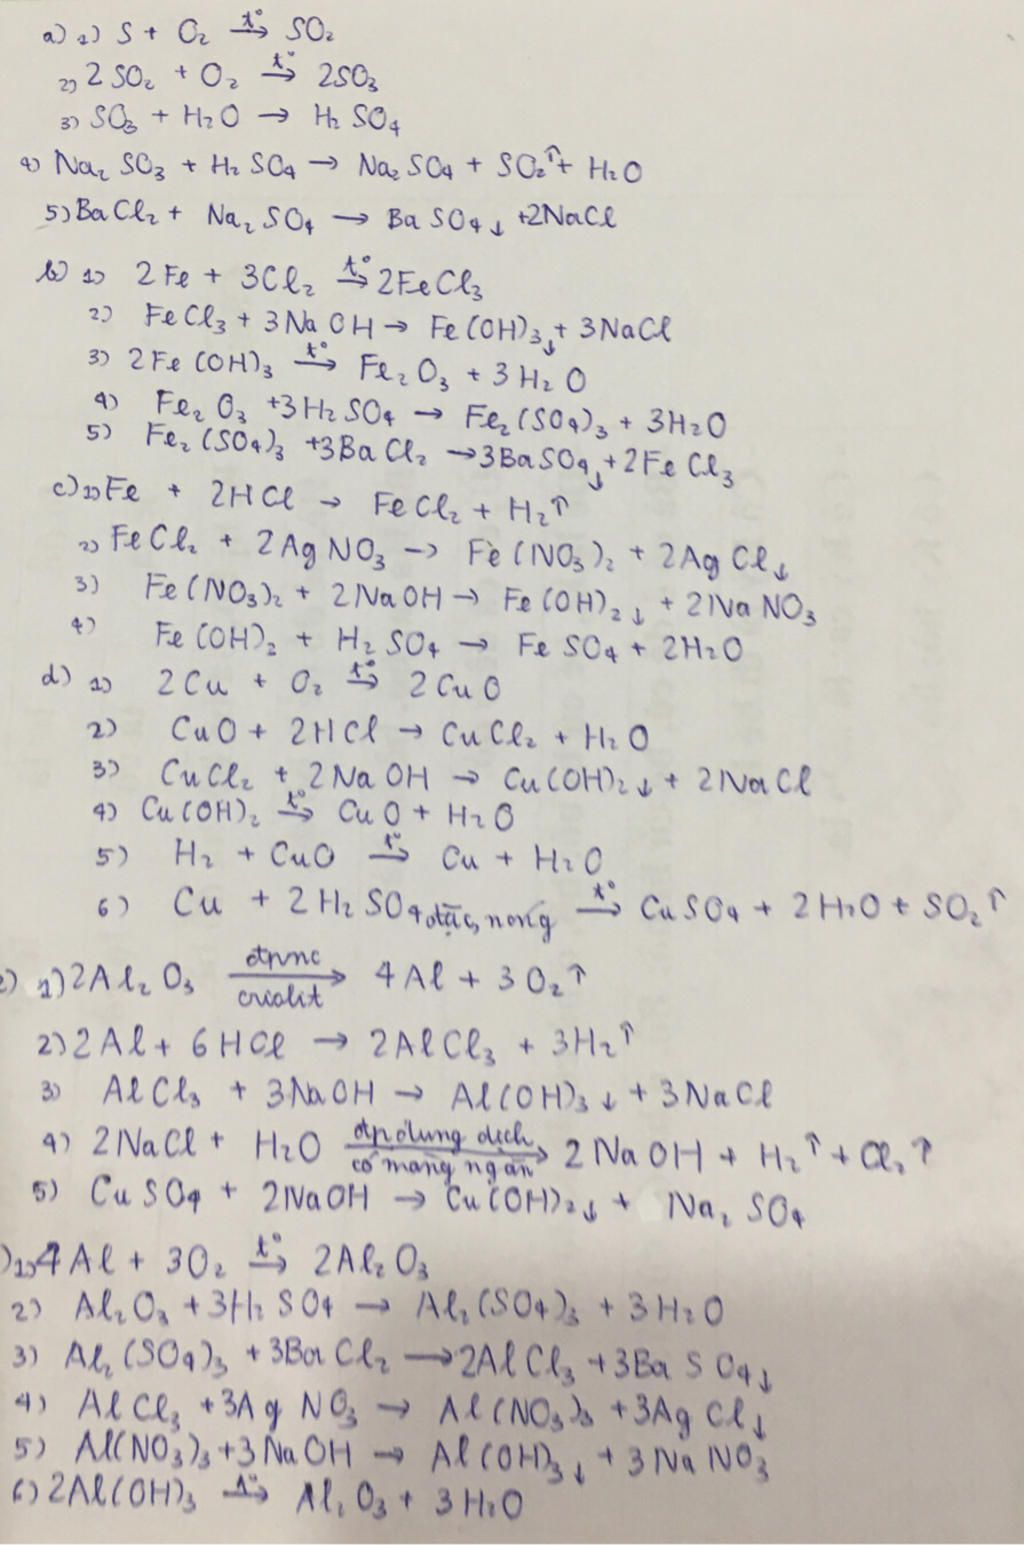 a) 1) S + O₂ →(t°) SO₂
2) 2SO₂ + O₂ →(t°) 2SO₃
3) SO₃ + H₂O → H₂SO₄
4) Na₂SO₃ + H₂SO₄ → Na₂SO₄ + SO₂↑ + H₂O
5) BaCl₂ + Na₂SO₄ → BaSO₄↓ + 2NaCl
b) 1) 2Fe + 3Cl₂ →(t°) 2FeCl₃
2) FeCl₃ + 3NaOH → Fe(OH)₃↓ + 3NaCl
3) 2Fe(OH)₃ →(t°) Fe₂O₃ + 3H₂O
4) Fe₂O₃ + 3H₂SO₄ → Fe₂(SO₄)₃ + 3H₂O
5) Fe₂(SO₄)₃ + 3BaCl₂ → 3BaSO₄↓ + 2FeCl₃
c) 1) Fe + 2HCl → FeCl₂ + H₂↑
2) FeCl₂ + 2AgNO₃ → Fe(NO₃)₂ + 2AgCl↓
3) Fe(NO₃)₂ + 2NaOH → Fe(OH)₂↓ + 2NaNO₃
4) Fe(OH)₂ + H₂SO₄ → FeSO₄ + 2H₂O
d) 1) 2Cu + O₂ →(t°) 2CuO
2) CuO + 2HCl → CuCl₂ + H₂O
3) CuCl₂ + 2NaOH → Cu(OH)₂↓ + 2NaCl
4) Cu(OH)₂ →(t°) CuO + H₂O
5) H₂ + CuO →(t°) Cu + H₂O
6) Cu + 2H₂SO₄ đặc, nóng →(t°) CuSO₄ + 2H₂O + SO₂↑
) 1) 2Al₂O₃ →(đpnc criolit) 4Al + 3O₂↑
2) 2Al + 6HCl → 2AlCl₃ + 3H₂↑
3) AlCl₃ + 3NaOH → Al(OH)₃↓ + 3NaCl
4) 2NaCl + H₂O →(đp dung dịch có màng ngăn) 2NaOH + H₂↑ + Cl₂↑
5) CuSO₄ + 2NaOH → Cu(OH)₂↓ + Na₂SO₄
) 1) 4Al + 3O₂ →(t°) 2Al₂O₃
2) Al₂O₃ + 3H₂SO₄ → Al₂(SO₄)₃ + 3H₂O
3) Al₂(SO₄)₃ + 3BaCl₂ → 2AlCl₃ + 3BaSO₄↓
4) AlCl₃ + 3AgNO₃ → Al(NO₃)₃ + 3AgCl↓
5) Al(NO₃)₃ + 3NaOH → Al(OH)₃↓ + 3NaNO₃
6) 2Al(OH)₃ →(t°) Al₂O₃ + 3H₂O